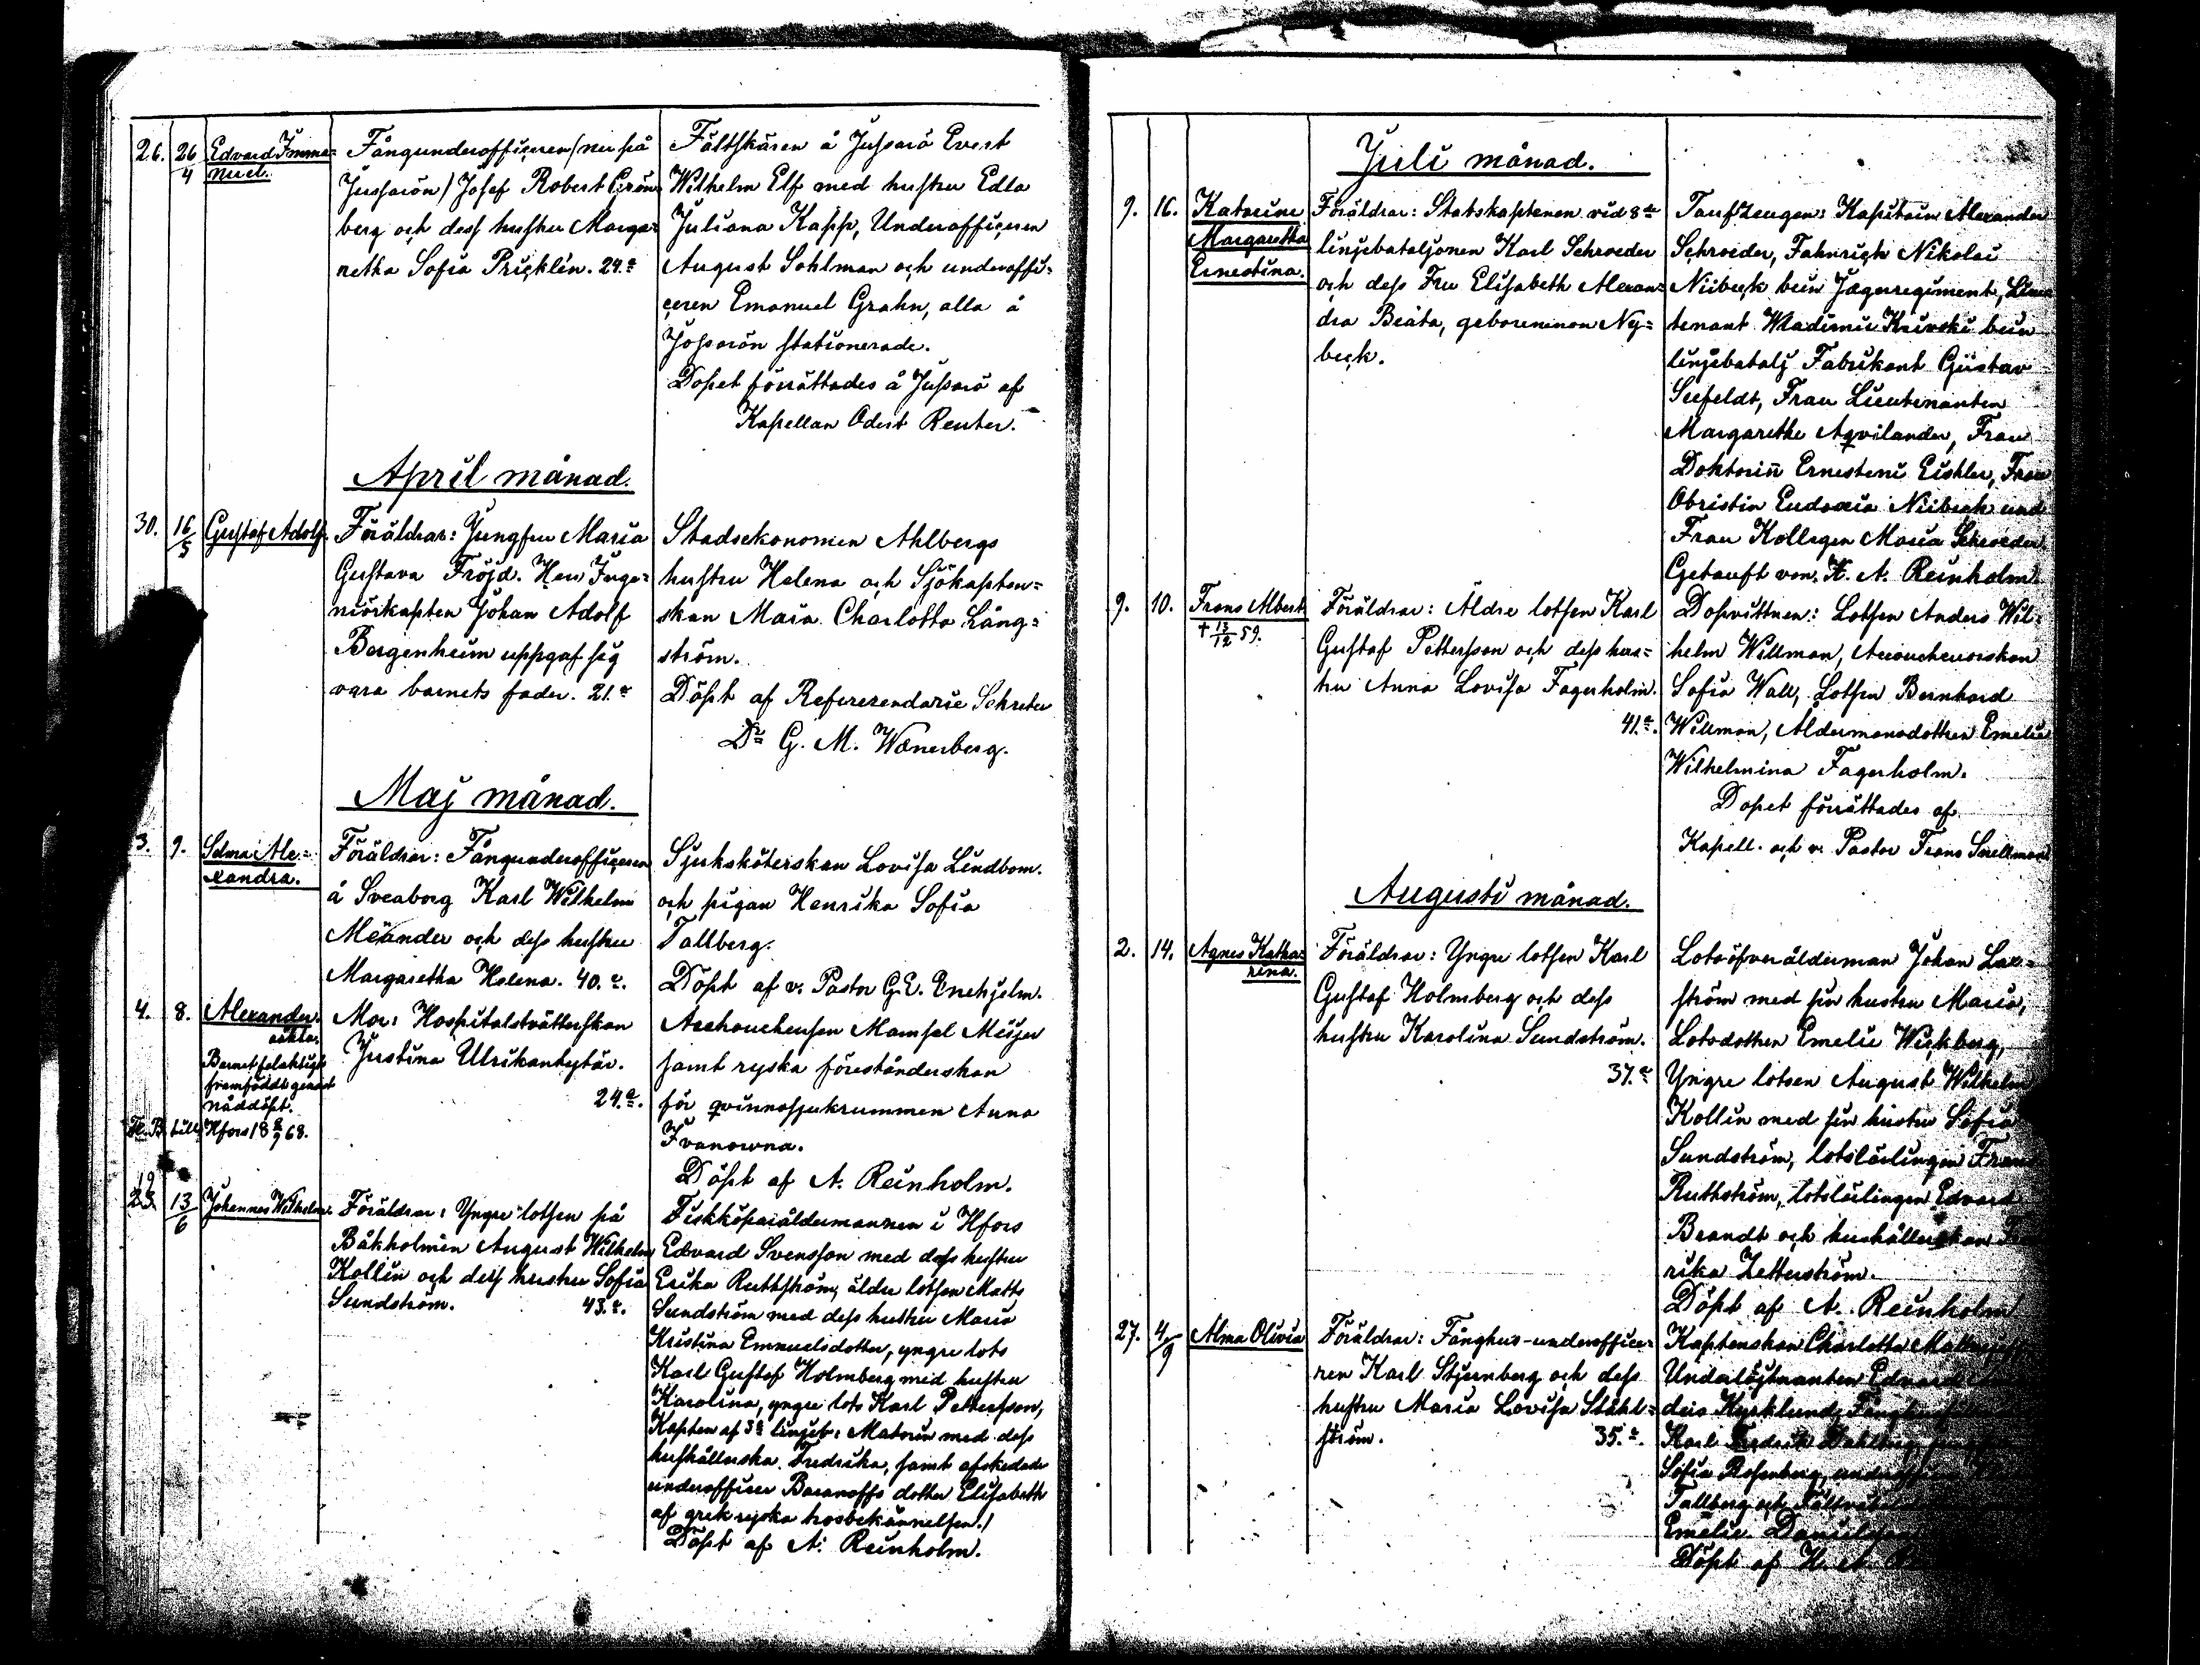 26. 26/4 Edvard Imma-
nuel.
Fångunderofficeren (nu på
Jussarön) Josef Robert Grön-
berg och dess hustru Marga-
retha Sofia Pricklin. 24.a
Fältskären å Jussarö Evert
Wilhelm Elf med hustru Edla
Juliana Kapp, Underofficeren
August Sohlman och underoffi-
ceren Emanuel Grahn, alla å
Jussarön stationerade.
Dopet förrättades å Jussarö af
Kapellan Odert Reuter.
April månad.
30. 16/5 Gustaf Adolf.
Föräldrar: Jungfru Maria
Gustava Fröjd. Herr Inge-
niörkapten Johan Adolf
Bergenheim uppgaf sig
vara barnets fader. 21.a
Stadsekonomen Ahlbergs
hustru Helena och Sjökapten-
skan Maria Charlotta Lång-
ström.
Döpt af Refererendarie Sekreter
Dr G. M. Wænerberg.
Maj månad.
3. 9. Selma Ale-
xandra.
Föräldrar: Fångunderofficeren
å Sveaborg Karl Wilhelm
Meander och dess hustru
Margaretha Helena. 40.a.
Sjuksköterskan Lovisa Lindbom.
och pigan Henrika Sofia
Tallberg.
Döpt af v. Pastor G. E. Enehjelm.
4. 8. Alexander.
oäkta.
Barnet felaktigt
framfödt genast
nöddöpt.
Hfors 18 8/9 68.
Mor: Hospitalstvätterskan
Justina Ulrikantytär.
24.a.
Acchoucheusen Mamsel Meijer
samt ryska föreståndarskan
för qvinnosjukrummen Anna
Ivanowna.
Döpt af A. Reinholm.
19
23. 13/6 Johannes Wilhelm.
Föräldrar: Yngre lotsen på
Båkholmen August Wilhelm
Kollin och dess hustru Sofia
Sundström. 43.a.
Fiskköparåldermannen i Hfors
Edvard Svensson med dess hustru
Erika Ruthström, äldre lotsen Matts
Sundström med dess hustru Maria
Kristina Emanuelsdotter, yngre lots
Karl Gustaf Holmberg med hustru
Karolina, yngre lots Karl Pettersson,
Kapten af 3e linjeb. Matorin med dess
hushållerska Fredrika, samt afskedade
underofficer Baranoffs dotter Elisabeth
af grek ryska trosbekännelsen.)
Döpt af A. Reinholm.
Juli månad.
9. 16. Katarina
Margaretha
Ernestina.
Föräldrar: Stabskaptenen vid 8de
linjebataljonen Karl Schroeder
och dess Fru Elisabeth Alexan-
dra Beata, geboreninon Ny-
beck.
Taufzeugen: Kapitain Alexander
Schroeder, Fahnrich Nikolai
Niibeck bein Jægerregiment, Lieu
tenant Wladimir Krivski bein
linjebatalj Fabrikant Gustav
Seefeldt, Frau Lieutenanten
Margarethe Aqvilander, Frau
Doktorin Ernesteni Eichler, Frau
Obristin Eudoxia Niibeck und
Frau Kollegen Maria Schroeder.
Getauft von K. A. Reinholm.
9. 10. Frans Albert
† 13/12 59.
Föräldrar: Äldre lotsen Karl
Gustaf Pettersson och dess hus-
tru Anna Lovisa Fagerholm.
41.a.
Dopvittnen: Lotsen Anders Wil-
helm Willman, Accoucheuskan
Sofia Wall, Lotsen Bernhard
Willman, Aldermansdottren Emelie
Wilhelmina Fagerholm.
Dopet förrättades af
Kapell. och v. Pastor Frans Snellman
Augusti månad.
2. 14. Agnes Katha-
rina.
Föräldrar: Yngre lotsen Karl
Gustaf Holmberg och dess
hustru Karolina Sundström.
37.a
Lotsöfverålderman Johan Lax-
ström med sin hustru Maria,
Lotsdottren Emelie Wickberg,
Yngre lotsen August Wilhelm
Kollin med sin hustru Sofia
Sundström, lotslärlingen Frans
Ruthström, lotslärlingen Edvard
Brandt och hushållerskan
rika Zetterström.
Döpt af A. Reinholm
27. 4/9 Alma Olivia
Föräldrar: Fånghus-underoffice-
ren Karl Stjernberg och dess
hustru Maria Lovisa Ståhl-
ström. 35.a.
Kaptenskan Charlotta
Underlöjtnanten Edvard
Kyrklund,
Karl Fredrik Dahlberg,
Sofia Rosenberg,
Tallberg och
Emelie
Döpt af K. A.